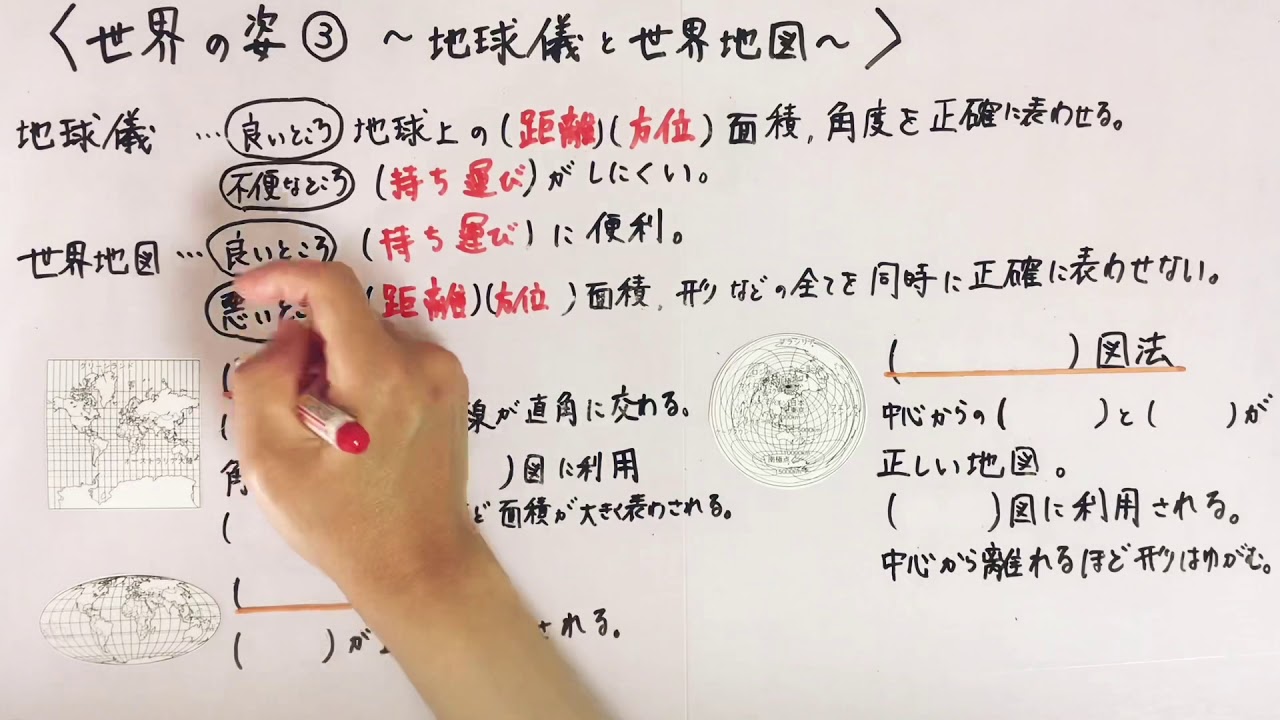 〈世界の姿③ ～地球儀と世界地図～〉
地球儀 …良いところ 地球上の(距離)(方位) 面積,角度を正確に表わせる。
不便なところ (持ち運び)がしにくい。
世界地図…良いところ (持ち運び)に便利。
悪いところ (距離)(方位 )面積,形などの全てを同時に正確に表わせない。
(
( 線が直角に交わる。
角 )図に利用
( ど面積が大きく表わされる。
(
( )が される。
( )図法
中心からの( )と( )が
正しい地図。
( )図に利用される。
中心から離れるほど形はゆがむ。